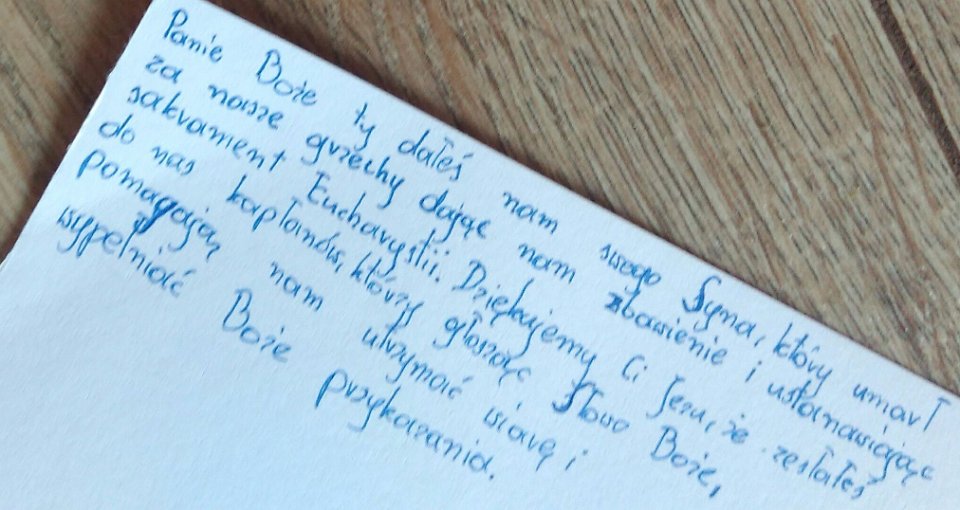 Panie Boże ty dałeś nam swego Syna, który umarł
za nasze grzechy dając nam zbawienie i ustanawiając
sakrament Eucharystii. Dziękujemy Ci Jezu, że zesłałeś
do nas kapłanów, którzy głosząc Słowo Boże,
pomagają nam utrzymać wiarę i
wypełniać Boże przykazania.